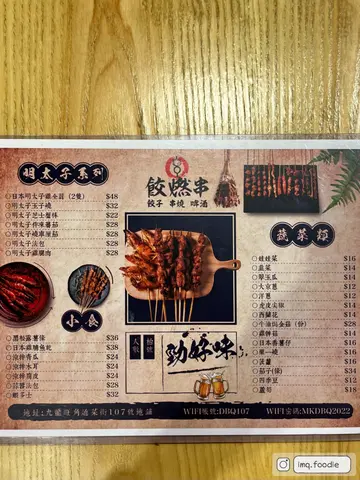 明太子系列
日本明太子雞全翼 (2隻) $48
明太子玉子燒 $32
明太子芝士蟹柳 $22
明太子炸味薯茄 $28
明太子燒軍薯 $28
明太子法包 $28
明太子雞腿肉 $28
小食
黑松露薯條 $36
日本雞雞魚乾 $38
涼拌青瓜 $24
涼拌木耳 $24
涼拌腐皮 $24
蒜蓉法包 $28
厚多士 $32
餃燃串
餃子 串燒 啤酒
人氣
檢驗
勁好味
蔬菜類
娃娃菜 $16
韭菜 $14
翠玉瓜 $14
大京蔥 $12
洋蔥 $12
虎皮尖椒 $16
西蘭花 $14
牛油焗金菇(份) $28
雞髀菇 $14
日本香薯仔 $16
粟一燒 $16
菠蘿 $14
茄子(條) $34
四季豆 $12
蘆筍 $18
地址:九龍旺角通菜街107號地舖
WIFI帳號:DBQ107
WIFI密碼:MKDBQ2022
imq.foodie